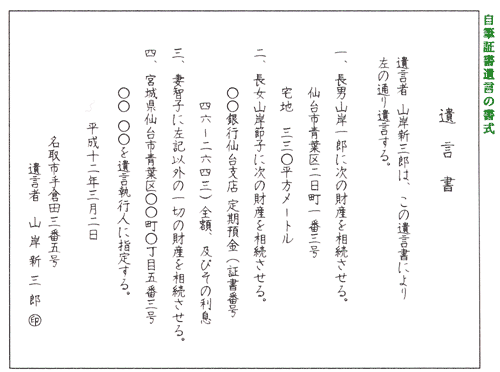 自筆証書遺言の書式
遺言書
遺言者 山岸新三郎は、この遺言書により
左の通り遺言する。
一、長男山岸一郎に次の財産を相続させる。
仙台市青葉区二日町一番三号
宅地 三三〇平方メートル
二、長女山岸節子に次の財産を相続させる。
〇〇銀行仙台支店 定期預金(証書番号
四六ー二六四三)全額、及びその利息
三、妻智子に左記以外の一切の財産を相続させる。
四、宮城県仙台市青葉区〇〇町〇丁目五番三号
〇〇 〇〇を遺言執行人に指定する。
平成十二年三月二日
名取市手倉田三番五号
遺言者 山岸新三郎 印